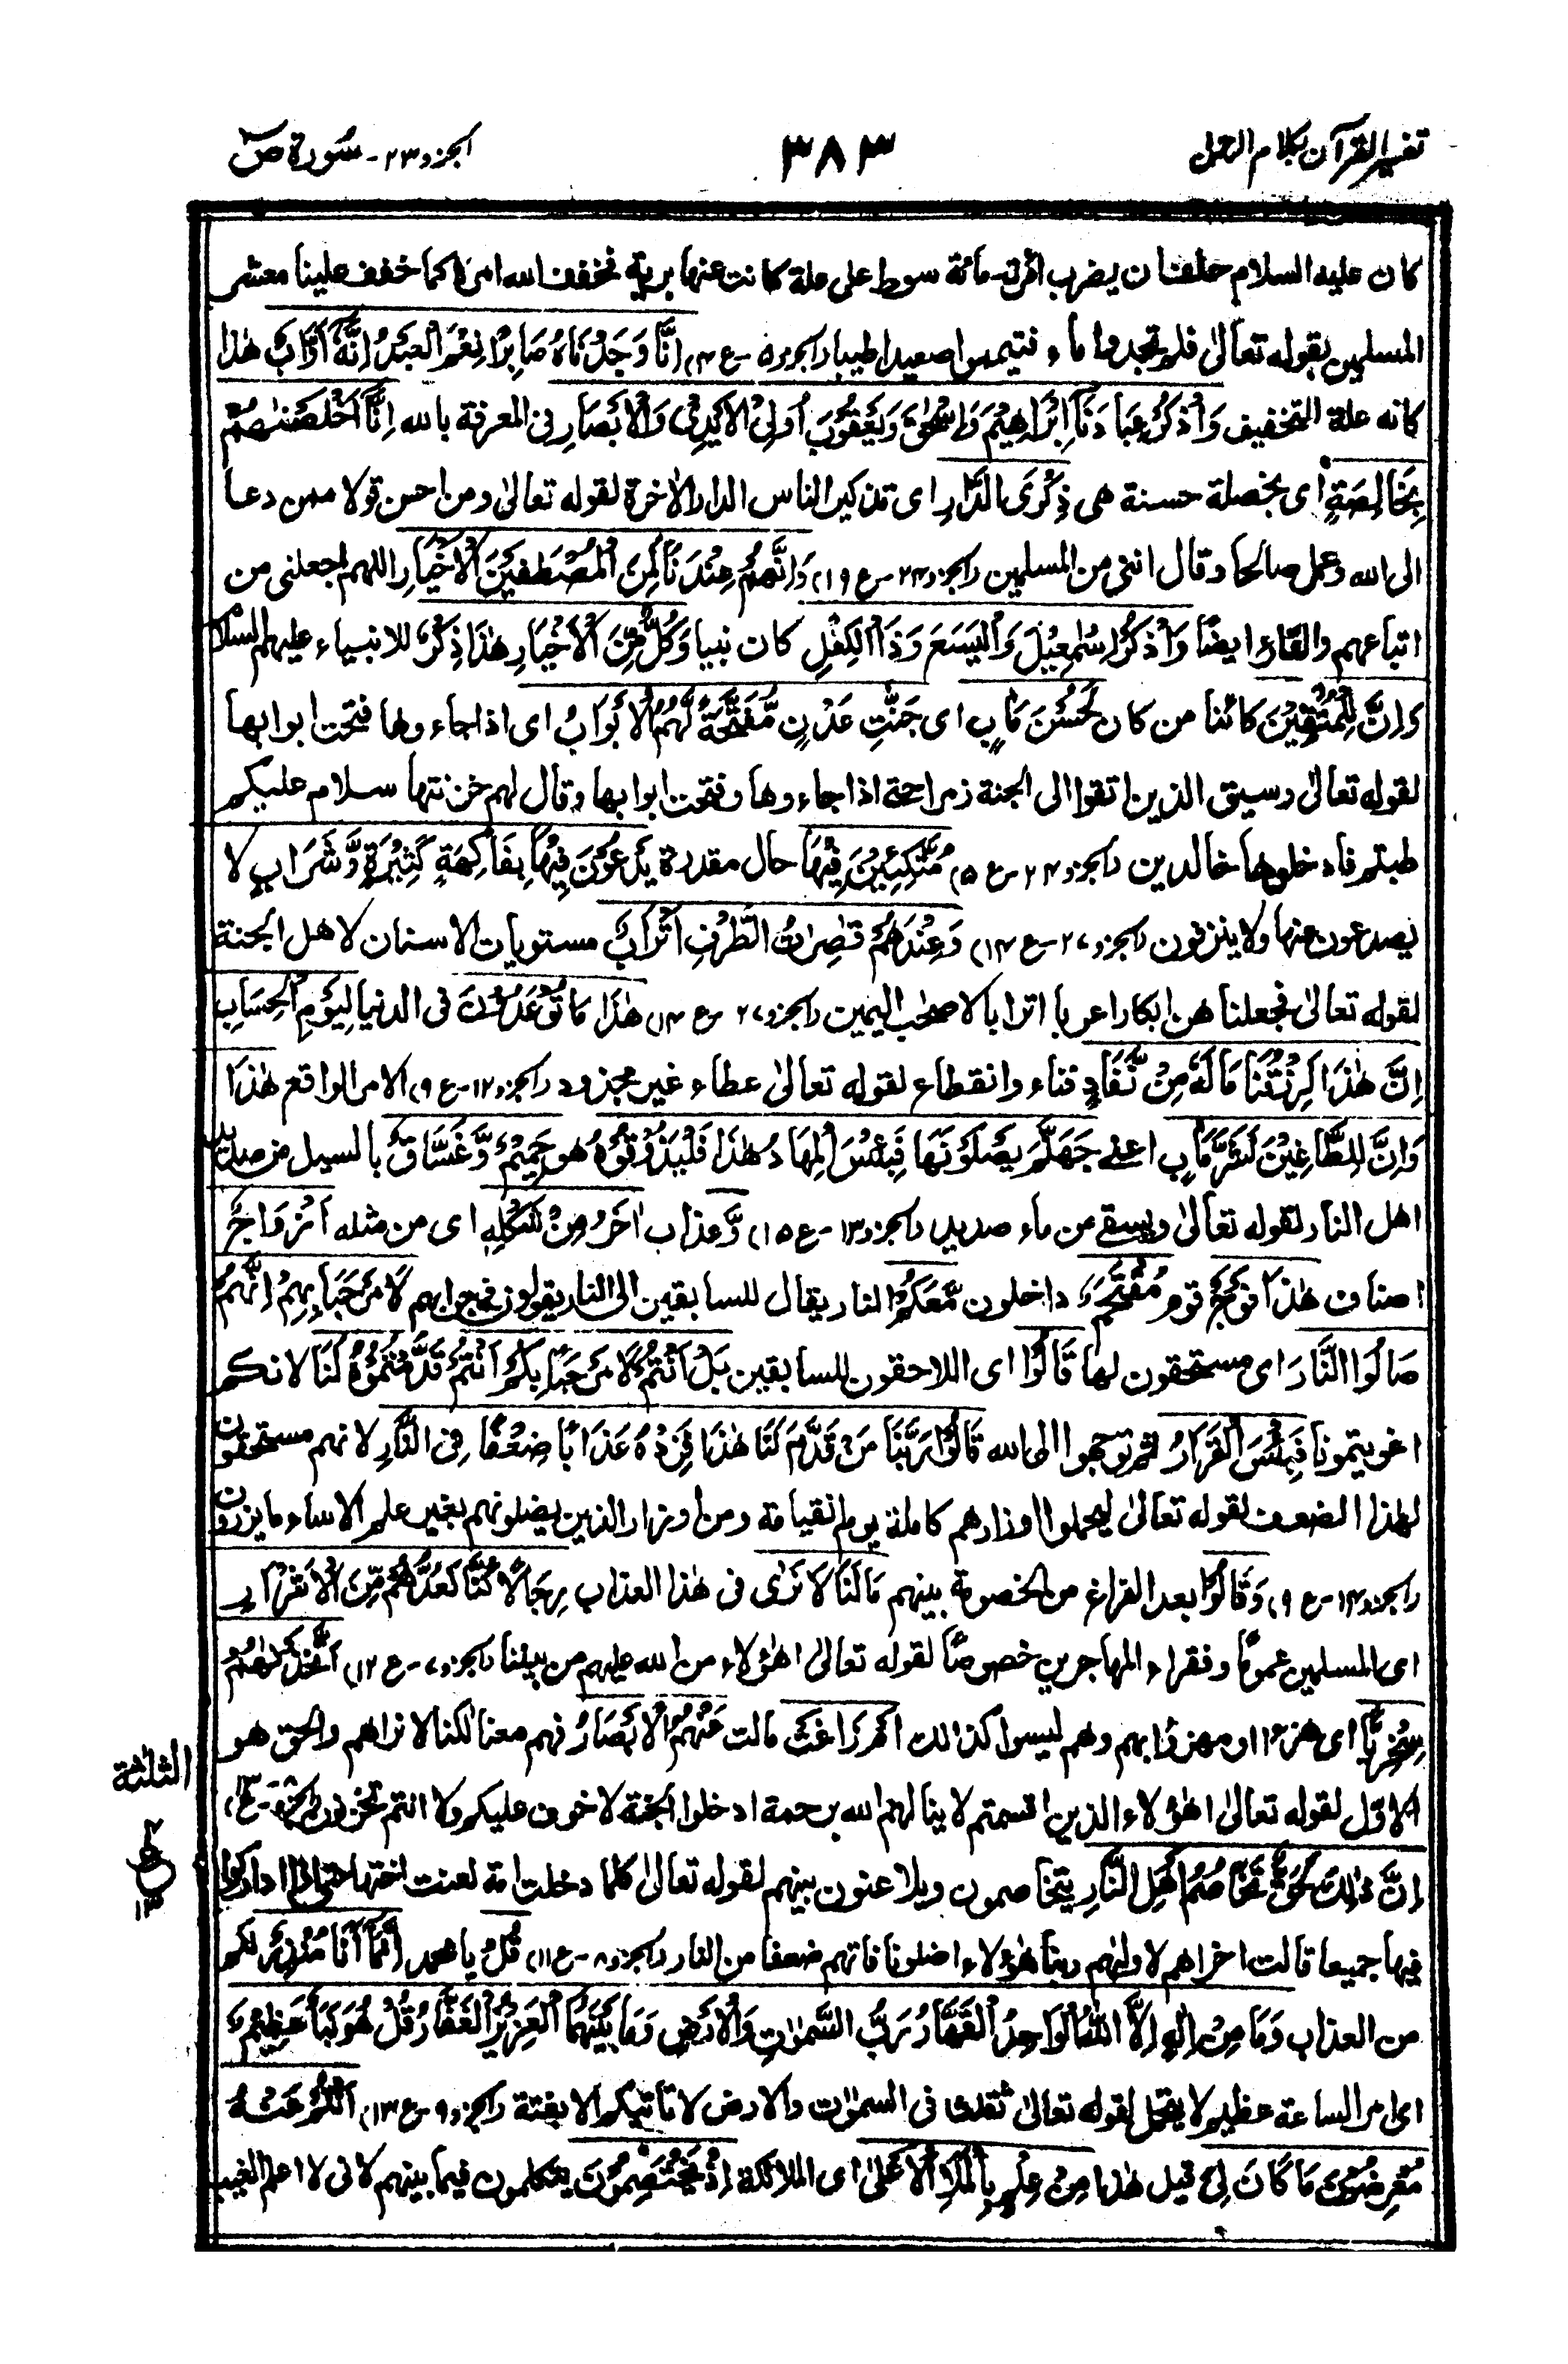 تفسير القرآن بكلام الرحمٰن
٣٨٣
الجزو ٢٣ - سُورة صٓ
كان عليه السلام حلف ان يضرب امرته مائة سوط على علة كانت عنها برية فخفف الله امره كما خفف علينا معشر
المسلمين بقوله تعالىٰ فلم تجدوا ماء فتيمموا صعيدا طيبا (الجزو ٥ - ع ٤) اِنَّا وَجَدْنَاهُ صَابِرًا نِعْمَ الْعَبْدُ اِنَّهٗ اَوَّابٌ هٰذا
كانه علة التخفيف وَاذْكُرْ عِبَادَنَا اِبْرَاهِيْمَ وَاِسْحٰقَ وَيَعْقُوْبَ اُولِى الْاَيْدِىْ وَالْاَبْصَارِ فى المعرفة بالله اِنَّا اَخْلَصْنٰهُمْ
بِخَالِصَةٍ اى بخصلة حسنة هى ذِكْرَى الدَّارِ اى تذكير الناس الدار الاٰخرة لقوله تعالىٰ ومن احسن قولا ممن دعا
الى الله وعمل صالحا وقال اننى من المسلمين (الجزو ٢٤ - ع ١٩) وَاِنَّهُمْ عِنْدَنَا لَمِنَ الْمُصْطَفَيْنَ الْاَخْيَارِ اللهم اجعلنى من
اتباعهم والقارء ايضًا وَاذْكُرْ اِسْمٰعِيْلَ وَالْيَسَعَ وَذَا الْكِفْلِ كان نبيا وَكُلٌّ مِّنَ الْاَخْيَارِ هٰذَا ذِكْرٌ للانبياء عليهم السلام
وَاِنَّ لِلْمُتَّقِيْنَ كائنا من كان لَحُسْنَ مَاٰبٍ اى جَنّٰتِ عَدْنٍ مُّفَتَّحَةً لَّهُمُ الْاَبْوَابُ اى اذا جاءوها فتحت ابوابها
لقوله تعالىٰ وسيق الذين اتقوا الى الجنة زمرا حتى اذا جاءوها وفتحت ابوابها وقال لهم خزنتها سلام عليكم
طبتم فادخلوها خالدين (الجزو ٢٤ - ع ٥) مُتَّكِئِيْنَ فِيْهَا حال مقدرة يَدْعُوْنَ فِيْهَا بِفَاكِهَةٍ كَثِيْرَةٍ وَّشَرَابٍ لا
يصدعون عنها ولا ينزفون (الجزو ٢٧ - ع ١٤) وَعِنْدَهُمْ قٰصِرٰتُ الطَّرْفِ اَتْرَابٌ مستويات الاسنان لاهل الجنة
لقوله تعالىٰ فجعلنا هن ابكارا عربا اترابا لاصحٰب اليمين (الجزو ٢٧ - ع ١٤) هٰذَا مَا تُوْعَدُوْنَ فى الدنيا لِيَوْمِ الْحِسَابِ
اِنَّ هٰذَا لَرِزْقُنَا مَا لَهٗ مِنْ نَّفَادٍ فناء وانقطاع لقوله تعالىٰ عطاء غير مجذوذ (الجزو ١٢ - ع ٩) الامر الواقع هٰذَا
وَاِنَّ لِلطَّاغِيْنَ لَشَرَّ مَاٰبٍ اعنى جَهَنَّمَ يَصْلَوْنَهَا فَبِئْسَ الْمِهَادُ هٰذَا فَلْيَذُوْقُوْهُ هو حَمِيْمٌ وَّغَسَّاقٌ بالسيل من صديد
اهل النار لقوله تعالىٰ ويسقى من ماء صديد (الجزو ١٣ - ع ١٥) وَّعذاب اٰخَرُ مِنْ شَكْلِهٖ اى من مثله اَزْوَاجٌ
اصناف هٰذَا فَوْجٌ قوم مُّقْتَحِمٌ داخلون مَّعَكُمْ النار يقال للسابقين الى النار يقولون فى جوابهم لَا مَرْحَبًا بِهِمْ اِنَّهُمْ
صَالُوا النَّارِ اى مستحقون لها قَالُوْا اى اللاحقون للسابقين بَلْ اَنْتُمْ لَا مَرْحَبًا بِكُمْ اَنْتُمْ قَدَّمْتُمُوْهُ لَنَا لانكم
اغويتمونا فَبِئْسَ الْقَرَارُ ثم توجهوا الى الله قَالُوْا رَبَّنَا مَنْ قَدَّمَ لَنَا هٰذَا فَزِدْهُ عَذَابًا ضِعْفًا فِى النَّارِ لانهم مستحقون
لهذا الضعف لقوله تعالىٰ ليحملوا اوزارهم كاملة يوم القيامة ومن اوزار الذين يضلونهم بغير علم الا ساء ما يزرون
(الجزو ١٤ - ع ٩) وَقَالُوْا بعد الفراغ من الخصومة بينهم مَا لَنَا لَا نَرٰى فى هٰذا العذاب رِجَالًا كُنَّا نَعُدُّهُمْ مِّنَ الْاَشْرَارِ
اى المسلمين عمومًا وفقراء المهاجرين خصوصًا لقوله تعالىٰ اهٰؤلاء من الله عليهم من بيننا (الجزو ٧ - ع ١٢) اَتَّخَذْنٰهُمْ
سِخْرِيًّا اى هزءا او مهزؤا بهم وهم ليسوا كذالك اَمْ زَاغَتْ مالت عَنْهُمُ الْاَبْصَارُ فهم معنا لكنا لا نراهم والحق هو
الاوّل لقوله تعالىٰ اهٰؤلاء الذين اقسمتم لا ينالهم الله برحمة ادخلوا الجنة لا خوف عليكم ولا انتم تحزنون
اِنَّ ذٰلِكَ لَحَقٌّ تَخَاصُمُ اَهْلِ النَّارِ يتخاصمون ويلاعنون بينهم لقوله تعالىٰ كلما دخلت امة لعنت اختها حتى اذا اداركوا
فيها جميعا قالت اخراهم لاولٰهم ربنا هٰؤلاء اضلونا فاٰتهم ضعفا من النار (الجزو ٨ - ع ١١) قُلْ يا محمد اِنَّمَا اَنَا مُنْذِرٌ لكم
من العذاب وَمَا مِنْ اِلٰهٍ اِلَّا اللّٰهُ الْوَاحِدُ الْقَهَّارُ رَبُّ السَّمٰوٰتِ وَالْاَرْضِ وَمَا بَيْنَهُمَا الْعَزِيْزُ الْغَفَّارُ قُلْ هُوَ نَبَاٌ عَظِيْمٌ
اى امر الساعة عظيم لا يحمل لقوله تعالىٰ ثقلت فى السمٰوٰت والارض لا تاتيكم الا بغتة (الجزو ٩ - ع ١٣) اَنْتُمْ عَنْهُ
مُعْرِضُوْنَ مَا كَانَ لِىَ قبل هٰذا مِنْ عِلْمٍ بِالْمَلَاِ الْاَعْلٰى اى الملائكة اِذْ يَخْتَصِمُوْنَ يتكلمون فيما بينهم لانى لا اعلم الغيب
الثلثة
ع
١٣